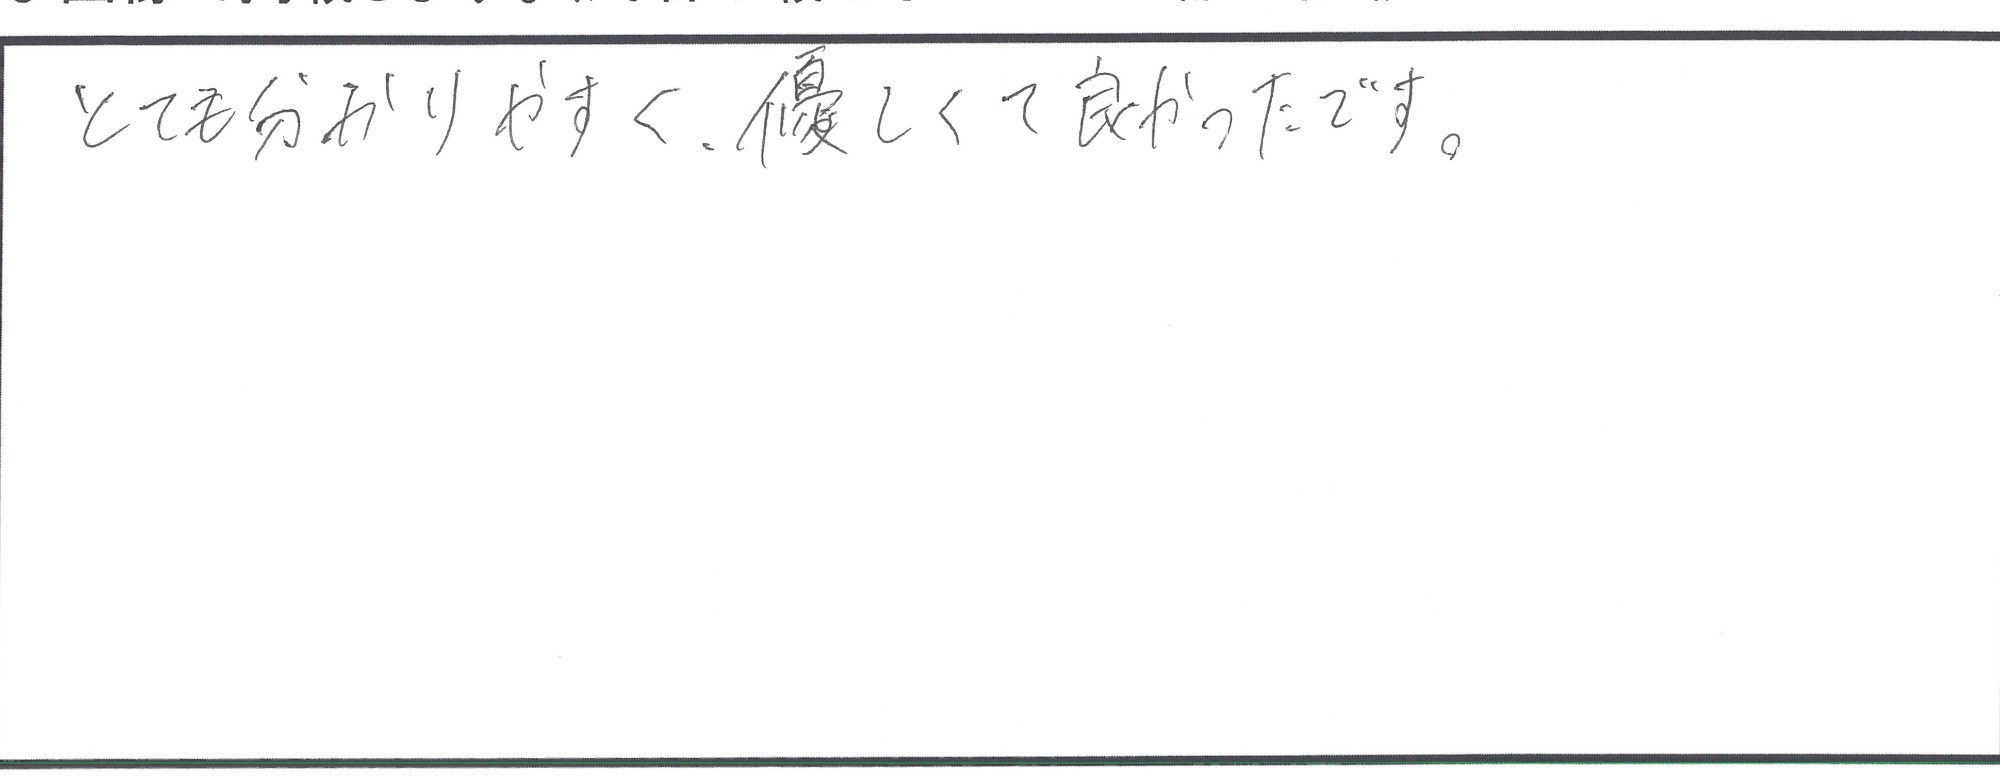 とても分かりやすく、優しくて良かったです。